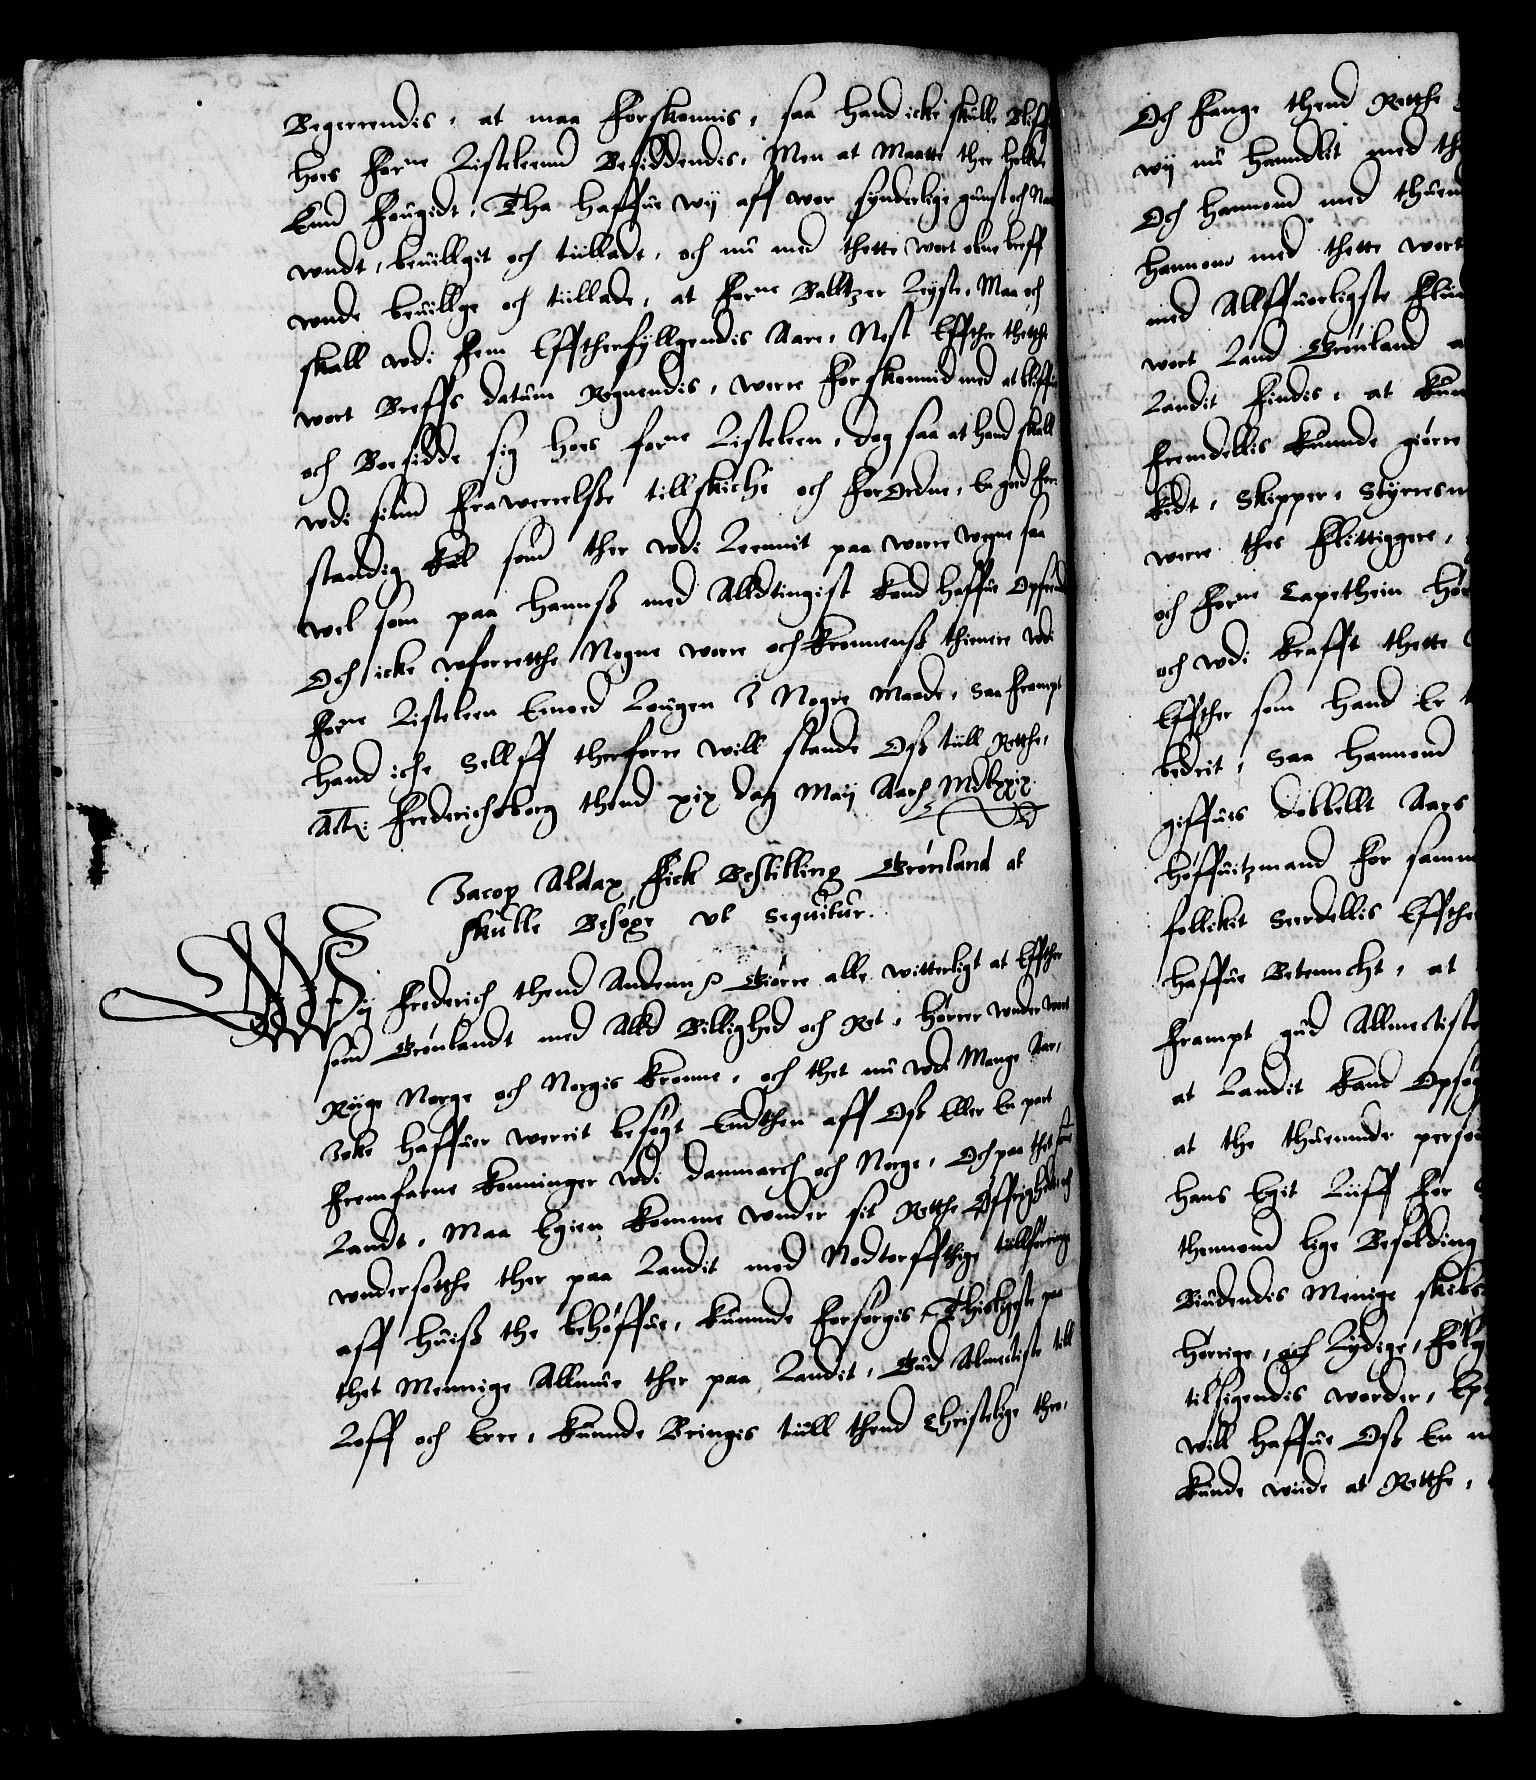 Begerrendis, at maa forskonnis, saa hand icke skulle Bliff
hoes forne Listeleenn Besiddendis, Men at Maatte ther holde
Enn fougidt, Tha haffue wy aff wor synderlige gunst och Na
wndt, beuillgit och tiilladt, och nu med thette wort obne breff
wnde beuillge och tiillade, at forne Balltzer Leyste, Maa och
skall wdi fem Efftherfyllgendis Aare, Nest Effther thette
wort Breffs datum Regnendis, werre forskonnid med at bliffue
och Boesidde sig hoes forne Listeleen, dog saa at hand skall
wdi sinn frawerrelsse tillskicke och forordne, En god for
standig kal som ther wdi Leennit paa worre wegne saa
wel som paa hannss med Alldtingist kand haffue Opseend
Och icke wforretthe Nogne worre och Kronnenss thienere wdi
forne Listeleen Emoed Lougen I Nogre Maade, saa frampt
hand icke Sellff therforre will stande Oss tiill Retthe,
Actum Frederichsborg thend xix dag Maij Aarss Mdlxxix
Jacop Aldax fick Bestilling Grønland at
skulle Besøge vt sequitur.
Wy Frederich thend Andenn etc Giørre alle witterligt at Effther
som Grønlandt med Alld Billighed och Ret, hørrer wnder wort
Riige Norge och Norgis Kronne, och thet nu wdi Mange Aar,
Icke haffuer werrit besøgt Endthen aff Oss Eller En part
fremfarne Konninger wdi danmarch och Norge, Och paa thet same
Landt, Maa Egien komme wnder sit Retthe Øffrighed, och
wndersotthe ther paa Landit med Nodtorffthige tiillføring
aff huiss the behøffue, kunnde forsørgis, Thisligeste paa
thet Mennige Allmue ther paa Landit, Gud Almectiste till
Loff och Erre, kunnde Bringis tiill thend Christelige thro,
Och fange thend Retthe
wy nu hanndlit med th
Och hannom med thuend
hannom med thette wort
med Allffuorligste fliid
wort Land Grønland a
Landit findis, at kun
fremdellis kunnde giørre
kedt, Skipper, Styrresm
werre thes flittiggere,
och forne Capethein hør
och wdi krafft thette
Effther som hand Er
bedrit, Saa hannom
giffuis dobbellt Aars
høffuitzmand for samm
follkit Serdellis Effthe
haffue Betenncht, at
frampt gud Allmectiste
at Landit kand Opsøg
at the thuennde perso
hans Egit Liiff for
thennom lige Besolding
Biudendis Menige skibs
hørrige, och Lydige, følg
tilsigendis worder,
will haffue Oss En
kunde wiide at Retthe,